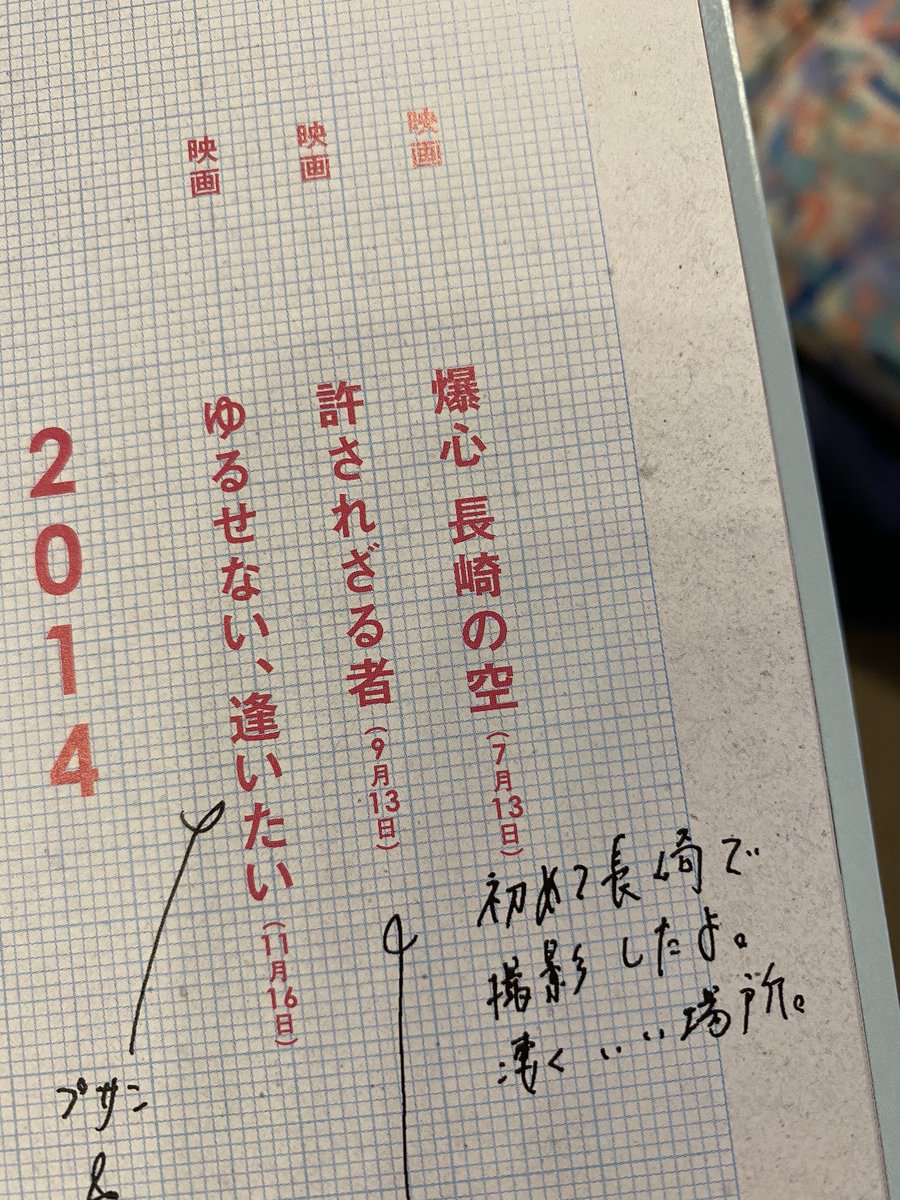 映画
爆心 長崎の空(7月13日)
初めて長崎で
撮影したよ。
凄くいい場所。
映画
許されざる者(9月13日)
映画
ゆるせない、逢いたい(11月16日)
プサン
&
2014